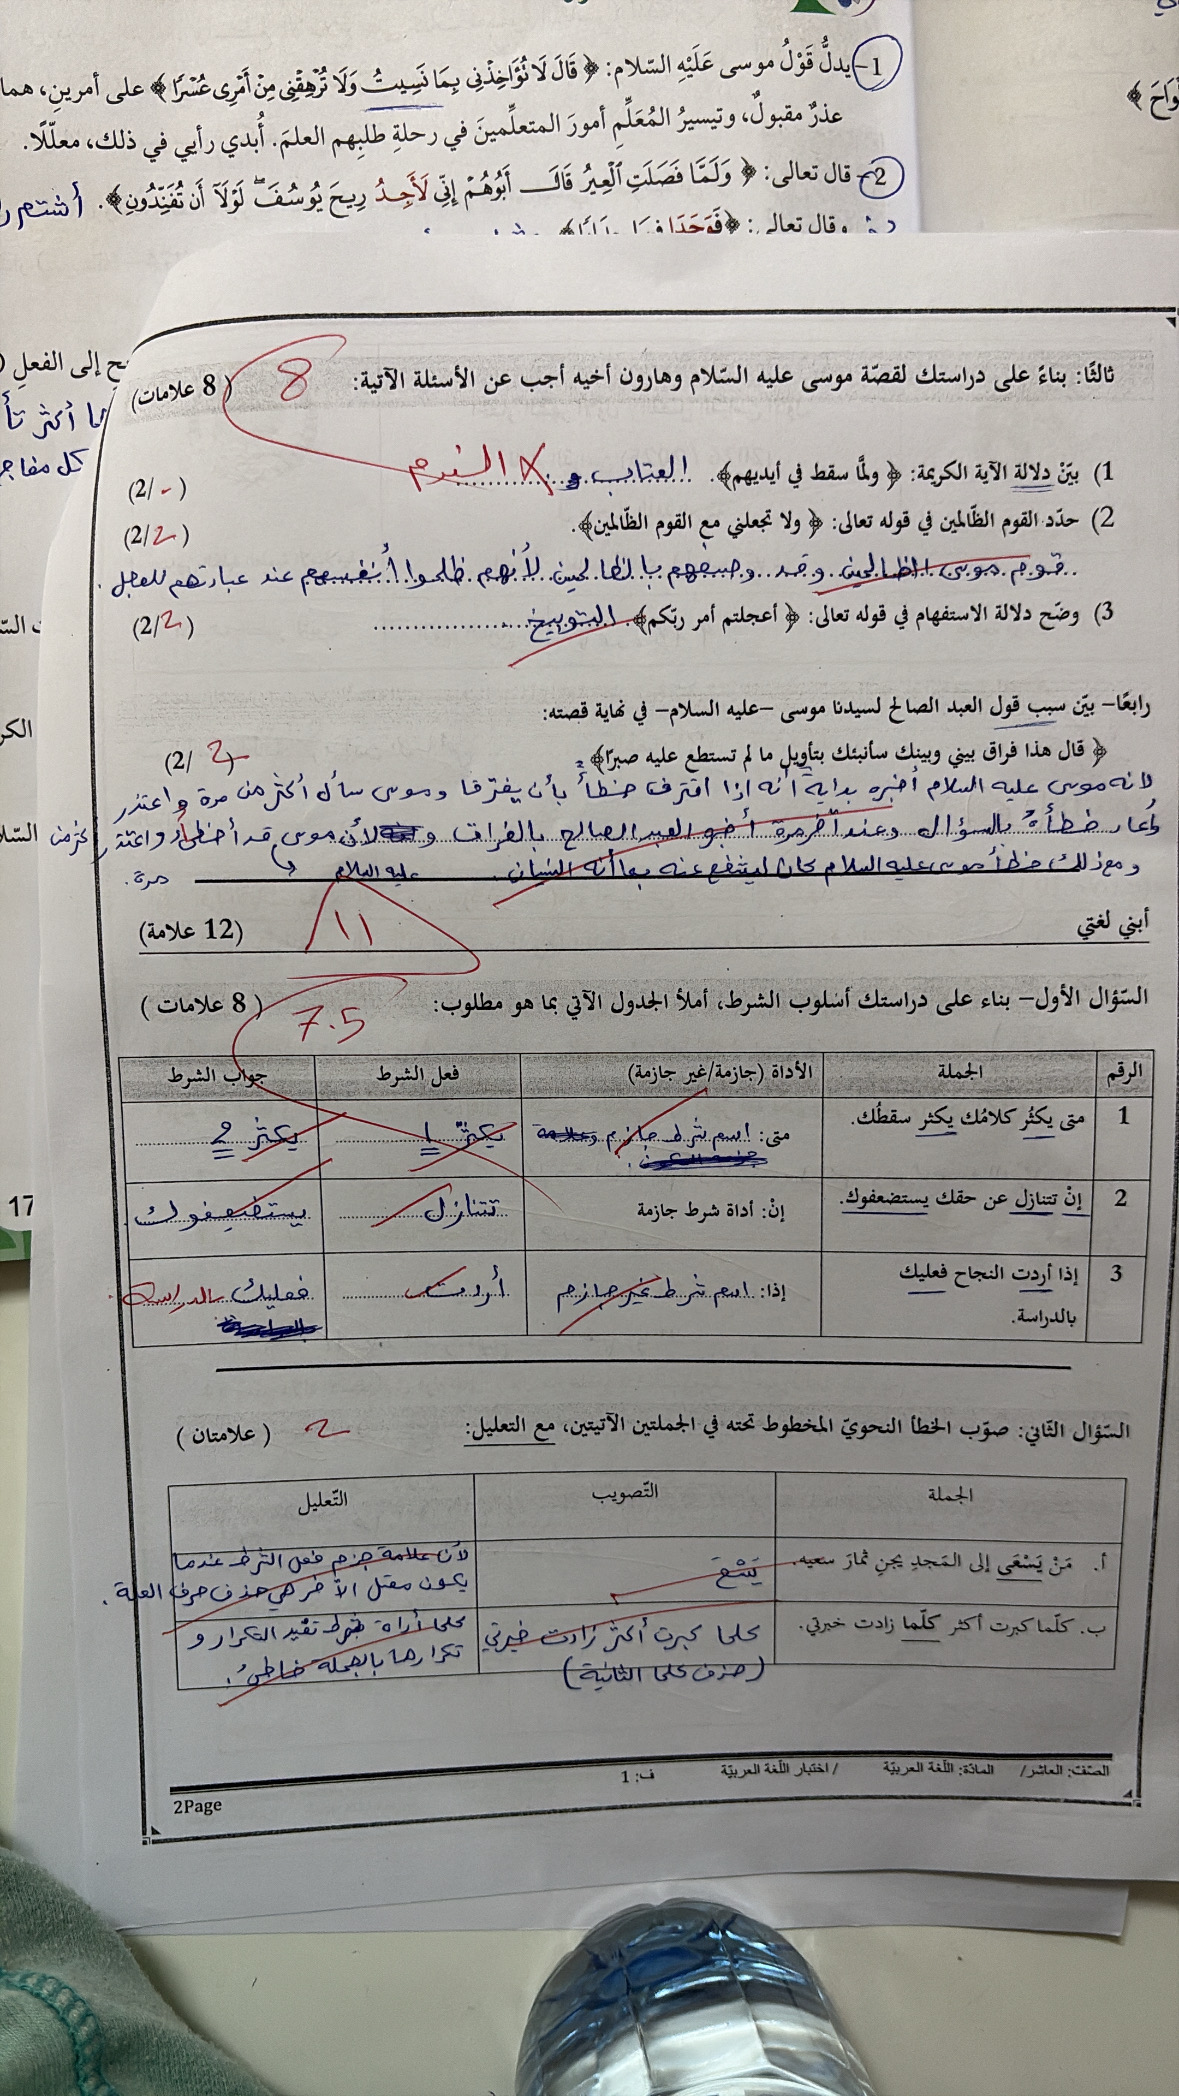 1- يدلُّ قَوْلُ موسى عَلَيْهِ السّلام: ﴿ قَالَ لَا تُؤَاخِذْنِي بِمَا نَسِيتُ وَلَا تُرْهِقْنِي مِنْ أَمْرِي عُسْرًا ﴾ على أمرينِ، هما
عذرٌ مقبولٌ، وتيسيرُ المُعَلِّمِ أمورَ المتعلِّمينَ في رحلةِ طلبِهم العلمَ. أُبدي رأيي في ذلك، معلّلًا.
2- قال تعالى: ﴿ وَلَمَّا فَصَلَتِ ٱلْعِيرُ قَالَ أَبُوهُمْ إِنِّي لَأَجِدُ رِيحَ يُوسُفَ لَوْلَآ أَن تُفَنِّدُونِ ﴾. أشتم
وقال تعالى: ﴿ فَوَجَدَا
ح إلى الفعل
أكثر
كل
الكر
17
ثالثًا: بناءً على دراستك لقصّة موسى عليه السّلام وهارون أخيه أجب عن الأسئلة الآتية: ( 8 علامات) 8
1) بيّنْ دلالة الآية الكريمة: ﴿ ولمَّا سقط في أيديهم﴾. العتاب و X الندم (2/-)
2) حدّد القوم الظّالمين في قوله تعالى: ﴿ ولا تجعلني مع القوم الظّالمين﴾. (2/2)
قوم موسى الظالمين وقد وصفهم بالظالمين لأنهم ظلموا أنفسهم عند عبادتهم للعجل.
3) وضّح دلالة الاستفهام في قوله تعالى: ﴿ أعجلتم أمر ربّكم﴾. التوبيخ (2/2)
رابعًا– بيّن سبب قول العبد الصالح لسيدنا موسى –عليه السلام– في نهاية قصته:
﴿ قال هذا فراق بيني وبينك سأنبئك بتأويل ما لم تستطع عليه صبرًا﴾ (2/2)
لانه موسى عليه السلام أخبره بداية أنه اذا اقترف خطأ بأن يفترقا وموسى سأل أكثر من مرة واعتذر
وأعاد خطأه بالسؤال وعند آخر مرة أخبره العبد الصالح بالفراق لأن موسى قد أخطأ واعتذر أكثر من
ومع ذلك خطأ موسى عليه السلام كان ليشفع عنه بما أنه النسيان. عليه السلام مرة.
أبني لغتي (12 علامة) 11
السّؤال الأول– بناء على دراستك أسلوب الشرط، أملأ الجدول الآتي بما هو مطلوب: ( 8 علامات ) 7.5
الرقم الجملة الأداة (جازمة/غير جازمة) فعل الشرط جواب الشرط
1 متى يكثُر كلامُك يكثر سقطُك. متى: اسم شرط جازم يكثر 1 يكثر 2
2 إنْ تتنازل عن حقك يستضعفوك. إنْ: أداة شرط جازمة تتنازل يستضعفوك
3 إذا أردت النجاح فعليك إذا: اسم شرط غير جازم أردت فعليك بالدراسة.
بالدراسة.
السّؤال الثّاني: صوّب الخطأ النحويّ المخطوط تحته في الجملتين الآتيتين، مع التعليل: ( علامتان ) 2
الجملة التّصويب التّعليل
أ. مَنْ يَسْعَى إلى المَجدِ يجنِ ثمارَ سعيه. يَسْعَ لأن علامة جزم فعل الشرط عندما
يكون معتل الآخر هي حذف حرف العلة.
ب. كلّما كبرت أكثر كلّما زادت خبرتي. كلما كبرت أكثر زادت خبرتي كلما أداة شرط تفيد التكرار و
(حذف كلما الثانية) تكرارها بالجملة خاطئ.
الصّفّ: العاشر/ المادّة: اللّغة العربيّة / اختبار اللّغة العربيّة ف: 1
2Page